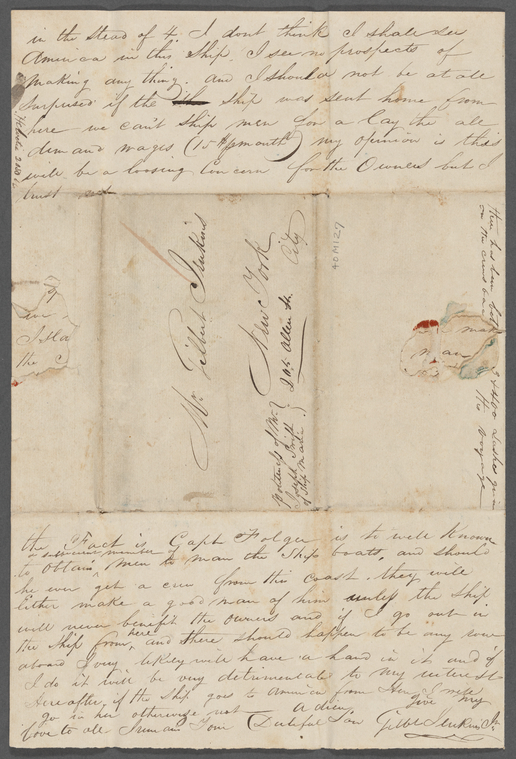 in the stead of 4. I dont think I shall see
America in this Ship. I see no prospects of
Making any thing. and I should not be at all
surprised if the ship was sent home from
here we can't ship men for a lay they all
demand wages (15 $ pr month) my opinion is this
will be a loosing concern for the Owners but I
trust not
Mr Gilbert Jenkins
New York
City
205 Allen St.
Politeness of Mr
Joseph Smith
of Ship
40 M 129
There has been
on the crews
lashes
the voyage
Isla
the
man
the Fact is Capt Folger is to well Known
to obtain a sufficient number of men to man the Ships boats, and should
he ever get a crew from this coast. they will
Either make a good man of him unless the Ship
will never benefit the owners and if I go out in
the Ship from here, and there should happen to be any row
aboard I very likely will have a hand in it and if
I do it will be very detrimental to my interest
Hereafter, if the Ship goes to America from
go in her otherwise not adieu, Give my
love to all I remain Your Dutiful Son Gilbt Jenkins Jr.